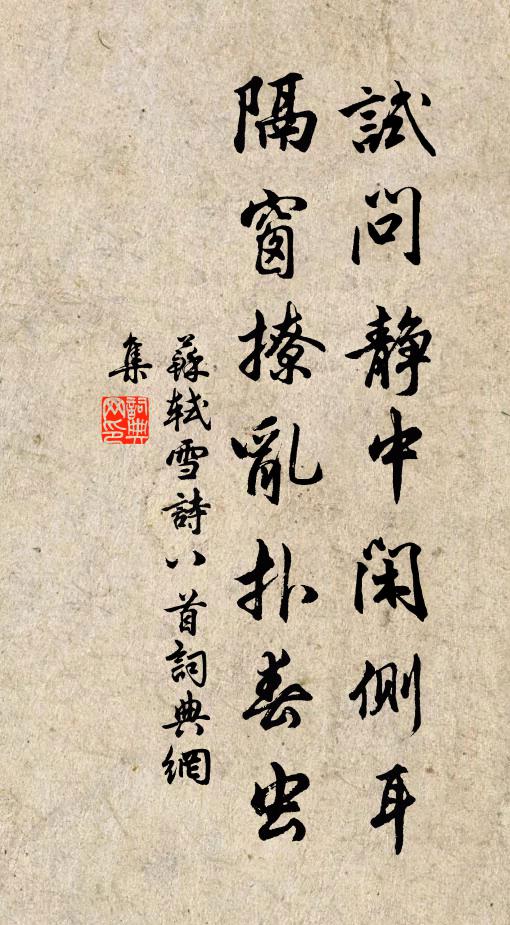 試问静中闲側耳
隔窗撩亂扑春虫
蘇軾雪詩八首詞典網
集
詞典
网印